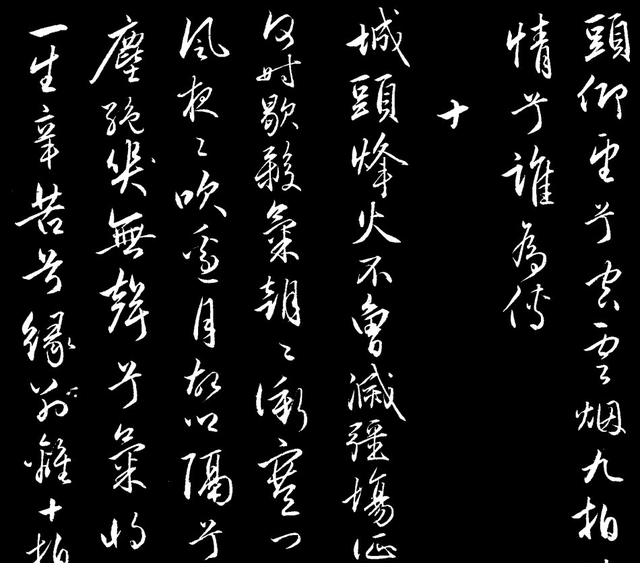 頭仰望兮空雲烟九拍
情兮誰為傳
十
城頭烽火不曾滅疆場征
何時歇殺氣朝〻衝塞門
風夜〻吹邊月故鄉隔兮
塵絕哭無聲兮氣將
一生辛苦兮緣別離十拍